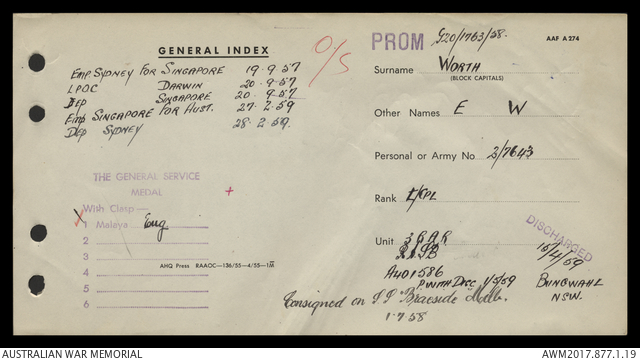 GENERAL INDEX
O/S
Emp. SYDNEY FOR SINGAPORE 19.9.57
LPOC DARWIN 20.9.57
Dep SINGAPORE 20.9.57
Emp SINGAPORE FOR AUST. 27.2.59
Dep SYDNEY 28.2.59.
THE GENERAL SERVICE
MEDAL
With Clasp—
1 Malaya
2
3
4
5
6
AHQ Press RAAOC—136/55—4/55—1M
PROM G20/1763/58.
AAF A 274
Surname WORTH
(BLOCK CAPITALS)
Other Names E W
Personal or Army No. 3/7643
Rank L/CPL
Unit 3 RAR
A401586
1/5/59
DISCHARGED
15/4/59
BUNGWAHL
NSW.
Consigned on S.S. Braeside Melb.
1.7.58
AUSTRALIAN WAR MEMORIAL
AWM2017.877.1.19